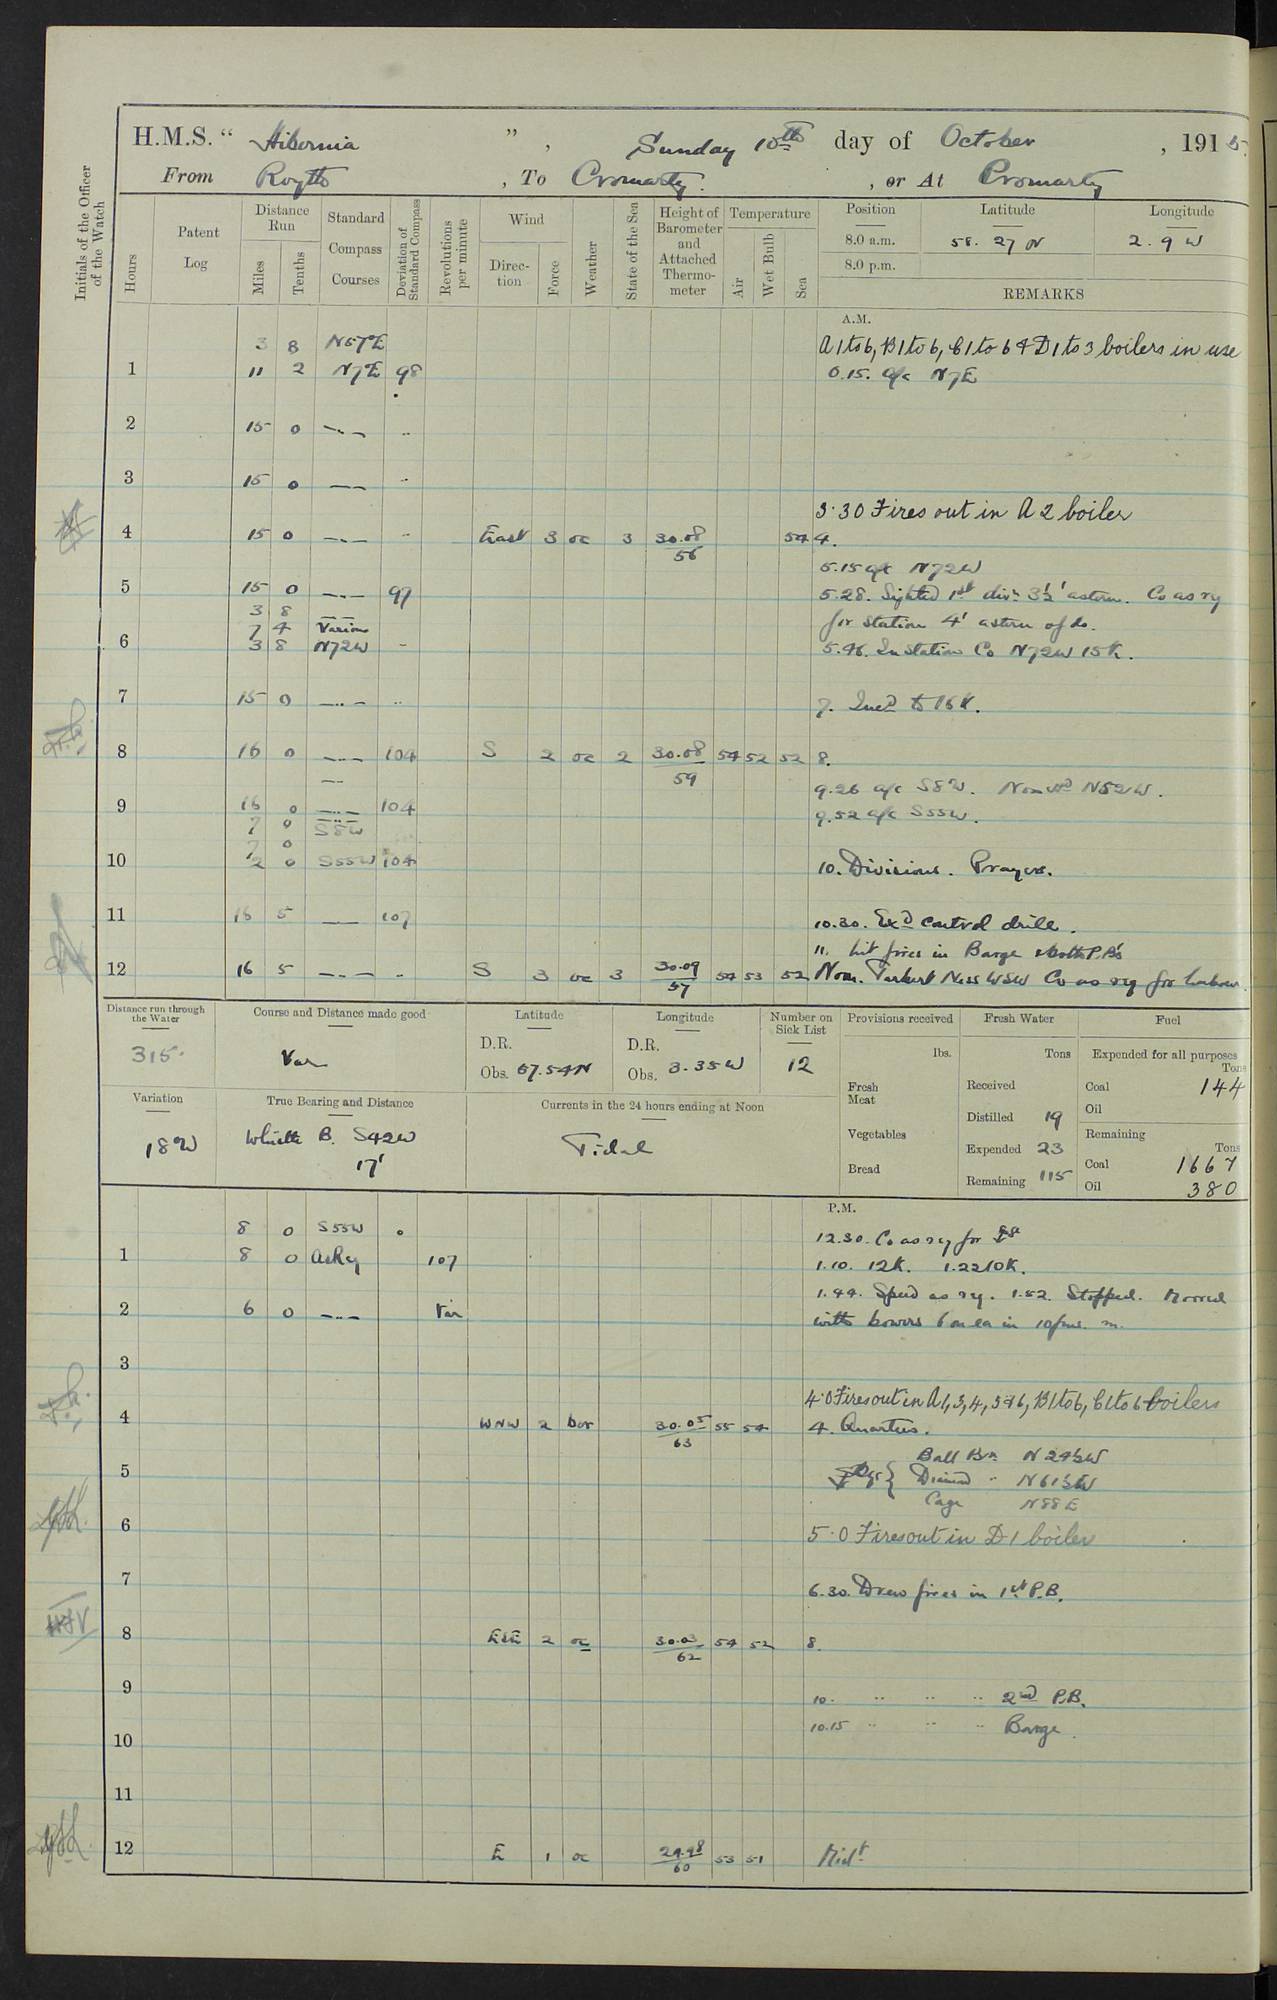 H.M.S. " Hibernia ", Sunday 10th day of October, 1915.
From Rosyth, To Cromarty., or At Cromarty
Initials of the Officer of the Watch
Hours
Patent Log
Distance Run
Miles
Tenths
Standard Compass Courses
Deviation of Standard Compass
Revolutions per minute
Wind
Direction
Force
Weather
State of the Sea
Height of Barometer and Attached Thermometer
Temperature
Air
Wet Bulb
Sea
Position Latitude Longitude
8.0 a.m. 58. 27 N 2. 9 W
8.0 p.m.
REMARKS
A.M.
3 8 N57E A 1 to 6, B 1 to 6, C 1 to 6 & D 1 to 3 boilers in use
1 11 2 N7E 98 0.15. a/c N7E
2 15 0 —..— ..
3 15 0 —— ..
3.30 Fires out in A 2 boiler
4 15 0 —..— .. East 3 oc 3 30.08 54 4.
56
5.15 a/c N72W
5 15 0 —..— 97 5.28. Sighted 1st divn 3½' astern. Co as rq
3 8 ——
7 4 Various for station 4' astern of do.
6 3 8 N72W .. 5.46. In Station Co N72W 15K.
7 15 0 —..— .. 7. Incd to 16K.
8 16 0 —..— 104 S 2 oc 2 30.08 54 52 52 8.
59
—— 9.26 a/c S8W. N52W.
9 16 0 —..— 104 9.52 a/c S55W.
7 0 S8W
7 0
10 2 0 S55W 104 10. Divisions. Prayers.
11 16 5 —— 107 10.30. Exd control drill.
11. lit fires in Barge & both P.B's
12 16 5 —..— .. S 3 oc 3 30.09 54 53 52 Noon. Tarbert Ness WSW Co as rq for harbour.
57
Distance run through the Water
315.
Course and Distance made good
Var
Latitude
D.R.
Obs. 57.54N
Longitude
D.R.
Obs. 3.35W
Number on Sick List
12
Variation
18W
True Bearing and Distance
Whistle B. S42W
17'
Currents in the 24 hours ending at Noon
Tidal
Provisions received
lbs.
Fresh Meat
Vegetables
Bread
Fresh Water
Tons
Received
Distilled 19
Expended 23
Remaining 115
Fuel
Expended for all purposes
Tons
Coal 144
Oil
Remaining
Tons
Coal 1667
Oil 380
P.M.
8 0 S55W 12.30. Co as rq for
1 8 0 As Rq 107 1.10. 12K. 1.22 10K.
1.44. Speed as rq. 1.52. Stopped. Moored
2 6 0 —..— Var with bowers 6 on ea in 10 fms. m.
3
4.0 Fires out in A 1, 3, 4, 5 & 6, B 1 to 6, C 1 to 6 boilers
4 WNW 2 bor 30.05 55 54 4. Quarters.
63
Ball Bn N 24½W
5 N 61½W
Cage N88E
6 5.0 Fires out in D 1 boiler
7 6.30. Drew fires in 1st P.B.
8 ESE 2 oc 30.03 54 52 8.
62
9 10. .. .. .. 2nd P.B.
10.15 .. .. .. Barge.
10
11
12 E 1 oc 29.98 53 51 Midt
60